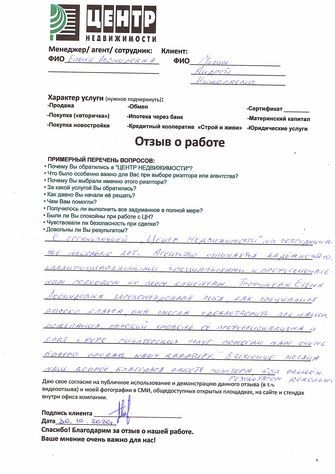 ЦЕНТР
НЕДВИЖИМОСТИ
Менеджер/ агент/ сотрудник: Клиент:
ФИО Елена Леонидовна ФИО
Андрей
Николаевич
Характер услуги (нужное подчеркнуть):
-Продажа -Обмен -Сертификат
-Покупка «вторичка») -Ипотека через банк -Материнский капитал
-Покупка новостройки -Кредитный кооператив «Строй и живи» -Юридические услуги
Отзыв о работе
ПРИМЕРНЫЙ ПЕРЕЧЕНЬ ВОПРОСОВ:
• Почему Вы обратились в "ЦЕНТР НЕДВИЖИМОСТИ"?
• Что было особенно важно для Вас при выборе риэлтора или агентства?
• Почему Вы выбрали именно этого риэлтора?
• За какой услугой Вы обратились?
• Как давно Вы начали её решать?
• Чем Вам помогли?
• Получилось ли выполнить все задуманное в полной мере?
• Были ли Вы спокойны при работе с ЦН?
• Чувствовали ли безопасность при сделке?
• Довольны ли Вы результатом?
С организацией "Центр недвижимость" мы сотруднича-
ем несколько лет. Агентство отличается надежностью,
квалифицированными специалистами и профессиональ-
ным подходом ко всем клиентам. Елена
Леонидовна зарекомендовала себя, как специалист
высокого класса, она смогла удовлетворить все наши
пожелания. Высокий уровень её профессионализма и
услуг помогли нам очень
продать нашу квартиру. В течение месяца
наш вопрос благодаря работе риэлтора, был решен.
Результатом довольны.
Даю свое согласие на публичное использование и демонстрацию данного отзыва (в т.ч.
видеоотзыва) и моей фотографии в СМИ, общедоступных открытых площадках, на сайте и стендах
внутри офиса компании.
Подпись клиента
Дата 30.10.2020г
Спасибо! Благодарим за отзыв о нашей работе.
Ваше мнение очень важно для нас!